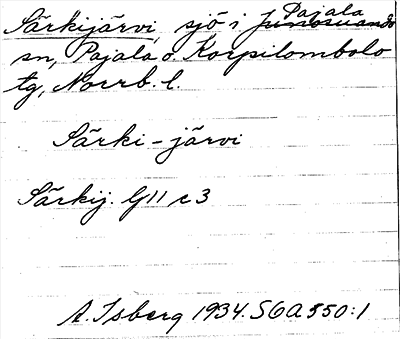 Särkijärvi, sjö i Pajala Junosuando
sn, Pajala o. Korpilombolo
tg, Norrb. l.
Särki-järvi
Särkij. G11 c3
A. Isberg 1934. S6A 550:1